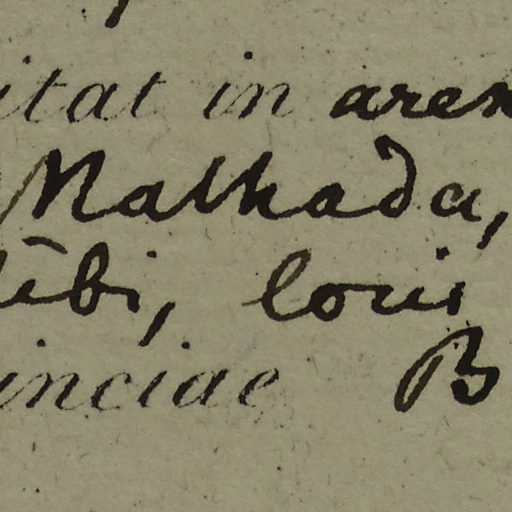 itat in aren
Malhada,
têbi, locis
inciae B